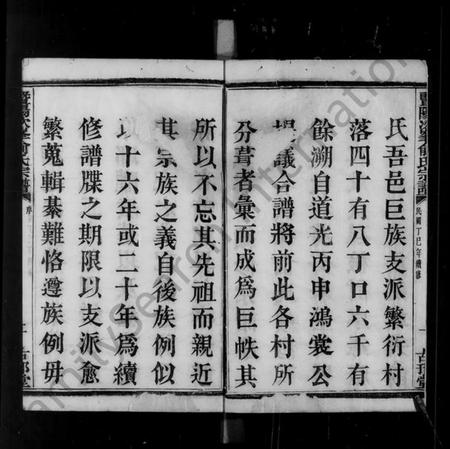 氏吾邑巨族支派繁衍村
落四十有八丁口六千有
餘溯自道光丙申鴻裳公
提議合譜將前此各村所
分葺者彙而成爲巨帙其
所以不忘其先祖而親近
其宗族之義自後族例似
以十六年或二十年爲續
修譜牒之期限以支派愈
繁蒐輯綦難恪遵族例毋
民國丁巳年續修
俞氏宗譜
序
FamilySearch International